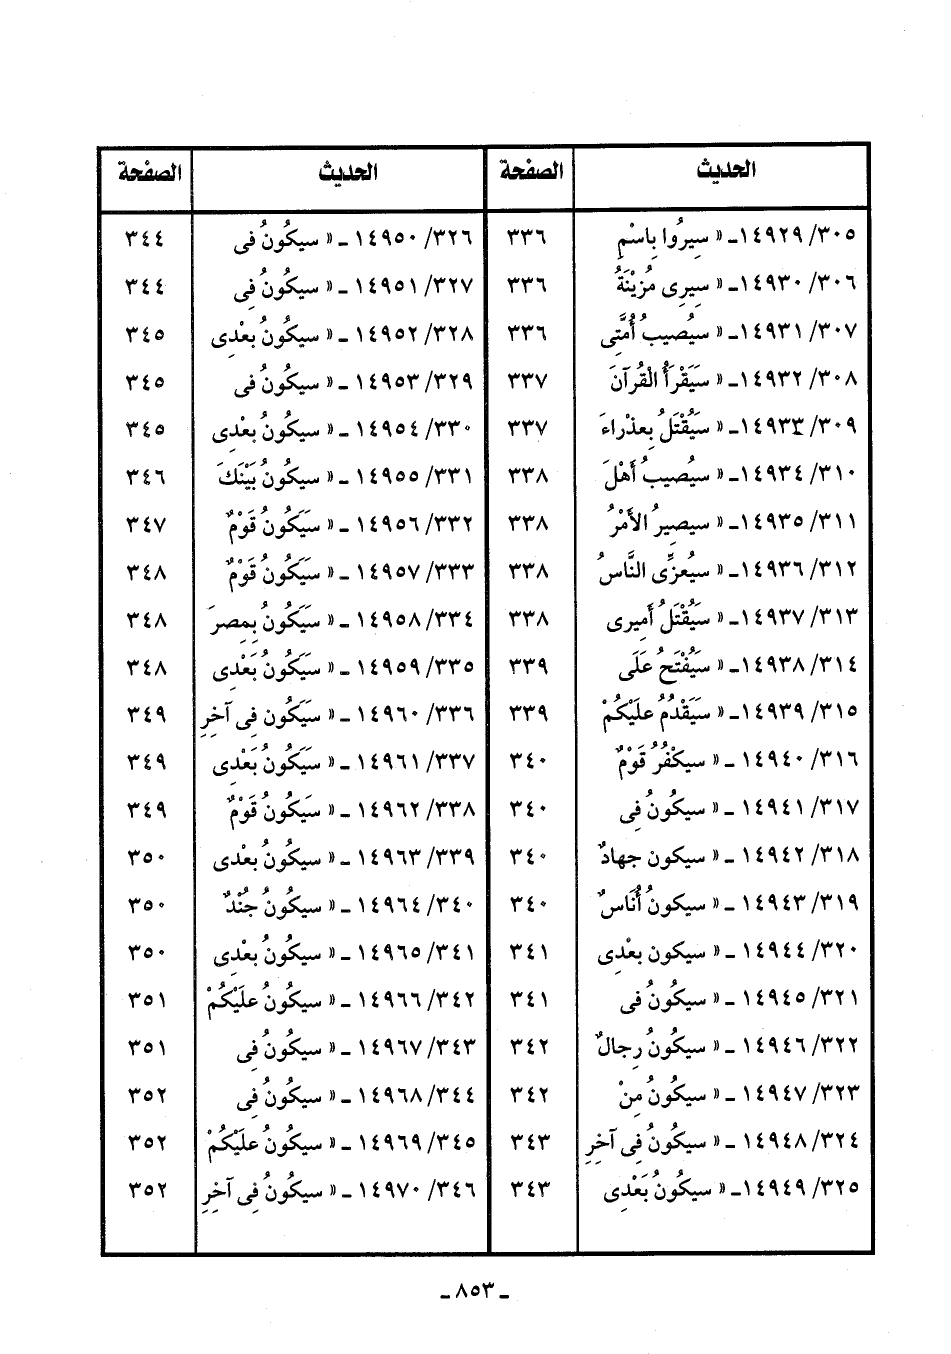 الحديث الصفحة الحديث الصفحة
٣٠٥/ ١٤٩٢٩ـ « سيرُوا بِاسْمِ ٣٣٦ ٣٢٦/ ١٤٩٥٠ ـ « سيكُونُ فى ٣٤٤
٣٠٦/ ١٤٩٣٠ـ « سِيرِى مُزَيْنَةُ ٣٣٦ ٣٢٧/ ١٤٩٥١ ـ « سيكُونُ فِى ٣٤٤
٣٠٧/ ١٤٩٣١ـ « سيُصيبُ أُمَّتِى ٣٣٦ ٣٢٨/ ١٤٩٥٢ ـ « سيكُونُ بعْدِى ٣٤٥
٣٠٨/ ١٤٩٣٢ـ « سَيَقْرَأُ الْقُرآنَ ٣٣٧ ٣٢٩/ ١٤٩٥٣ ـ « سيكُونُ فى ٣٤٥
٣٠٩/ ١٤٩٣٣ـ « سَيُقْتَلُ بِعذْراءَ ٣٣٧ ٣٣٠/ ١٤٩٥٤ ـ « سيكُونُ بعْدِى ٣٤٥
٣١٠/ ١٤٩٣٤ـ « سيُصيبُ أَهْلَ ٣٣٨ ٣٣١/ ١٤٩٥٥ ـ « سيكُونُ بَيْنَكَ ٣٤٦
٣١١/ ١٤٩٣٥ـ « سيصِيرُ الأَمْرُ ٣٣٨ ٣٣٢/ ١٤٩٥٦ ـ « سَيَكُونُ قَوْمٌ ٣٤٧
٣١٢/ ١٤٩٣٦ـ « سيُعزِّى النَّاسُ ٣٣٨ ٣٣٣/ ١٤٩٥٧ ـ « سَيَكُونُ قَوْمٌ ٣٤٨
٣١٣/ ١٤٩٣٧ـ « سَيُقْتَلُ أَمِيرى ٣٣٨ ٣٣٤/ ١٤٩٥٨ ـ « سَيَكُونُ بِمِصرَ ٣٤٨
٣١٤/ ١٤٩٣٨ـ « سَيُفْتَحُ عَلَى ٣٣٩ ٣٣٥/ ١٤٩٥٩ ـ « سَيَكُونُ بَعْدِى ٣٤٨
٣١٥/ ١٤٩٣٩ـ « سَيَقْدُمُ علَيْكُمْ ٣٣٩ ٣٣٦/ ١٤٩٦٠ ـ « سَيَكُون فِى آخِرِ ٣٤٩
٣١٦/ ١٤٩٤٠ ـ « سيكْفُرُ قَوْمٌ ٣٤٠ ٣٣٧/ ١٤٩٦١ ـ « سَيَكُونُ بَعْدِى ٣٤٩
٣١٧/ ١٤٩٤١ ـ « سيكُونُ فِى ٣٤٠ ٣٣٨/ ١٤٩٦٢ ـ « سيَكُونُ قَوْمٌ ٣٤٩
٣١٨/ ١٤٩٤٢ ـ « سيكون جهادٌ ٣٤٠ ٣٣٩/ ١٤٩٦٣ ـ « سيكُونُ بعْدى ٣٥٠
٣١٩/ ١٤٩٤٣ ـ « سيكونُ أُنَاسٌ ٣٤٠ ٣٤٠/ ١٤٩٦٤ ـ « سيكُونُ جُنْدٌ ٣٥٠
٣٢٠/ ١٤٩٤٤ ـ « سيكون بعْدِى ٣٤١ ٣٤١/ ١٤٩٦٥ ـ « سيكُونُ بعْدِى ٣٥٠
٣٢١/ ١٤٩٤٥ ـ « سيكُونُ فى ٣٤١ ٣٤٢/ ١٤٩٦٦ ـ « سيكُونُ علَيْكُمْ ٣٥١
٣٢٢/ ١٤٩٤٦ ـ « سيكُونُ رِجالٌ ٣٤٢ ٣٤٣/ ١٤٩٦٧ ـ « سيكُونُ فِى ٣٥١
٣٢٣/ ١٤٩٤٧ ـ « سيكُونُ مِنْ ٣٤٢ ٣٤٤/ ١٤٩٦٨ ـ « سيكُونُ فِى ٣٥٢
٣٢٤/ ١٤٩٤٨ ـ « سيكُونُ فِى آخِرِ ٣٤٣ ٣٤٥/ ١٤٩٦٩ ـ « سيكُونُ علَيْكُمْ ٣٥٢
٣٢٥/ ١٤٩٤٩ـ « سيكُونُ بَعْدِى ٣٤٣ ٣٤٦/ ١٤٩٧٠ ـ « سيكُونُ فِى آخِرِ ٣٥٢
ـ ٨٥٣ ـ